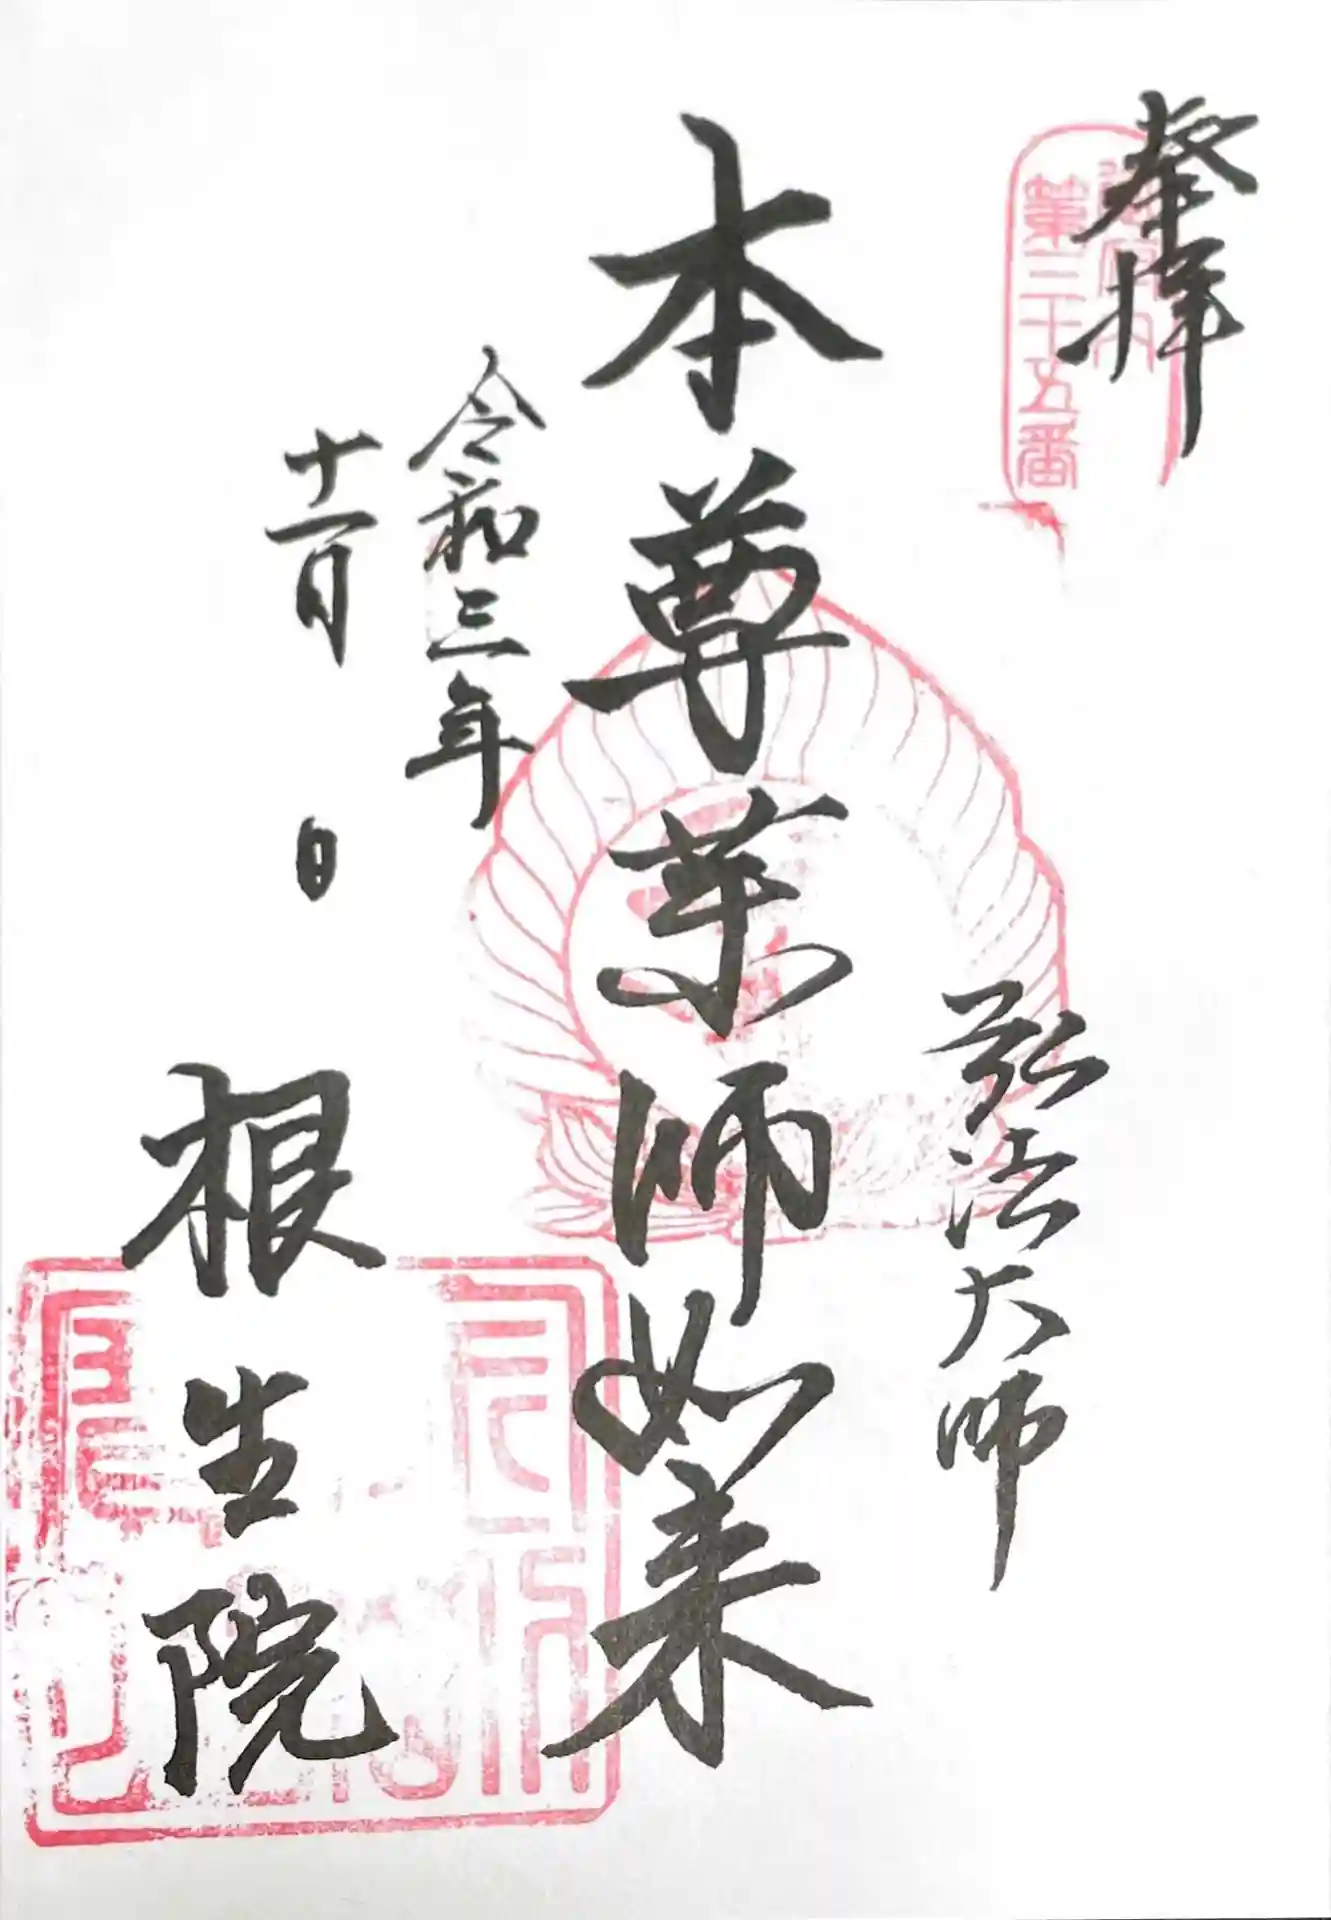 奉拝
第三十五番
弘法大師
本尊薬師如来
令和三年
十一月 日
根生院